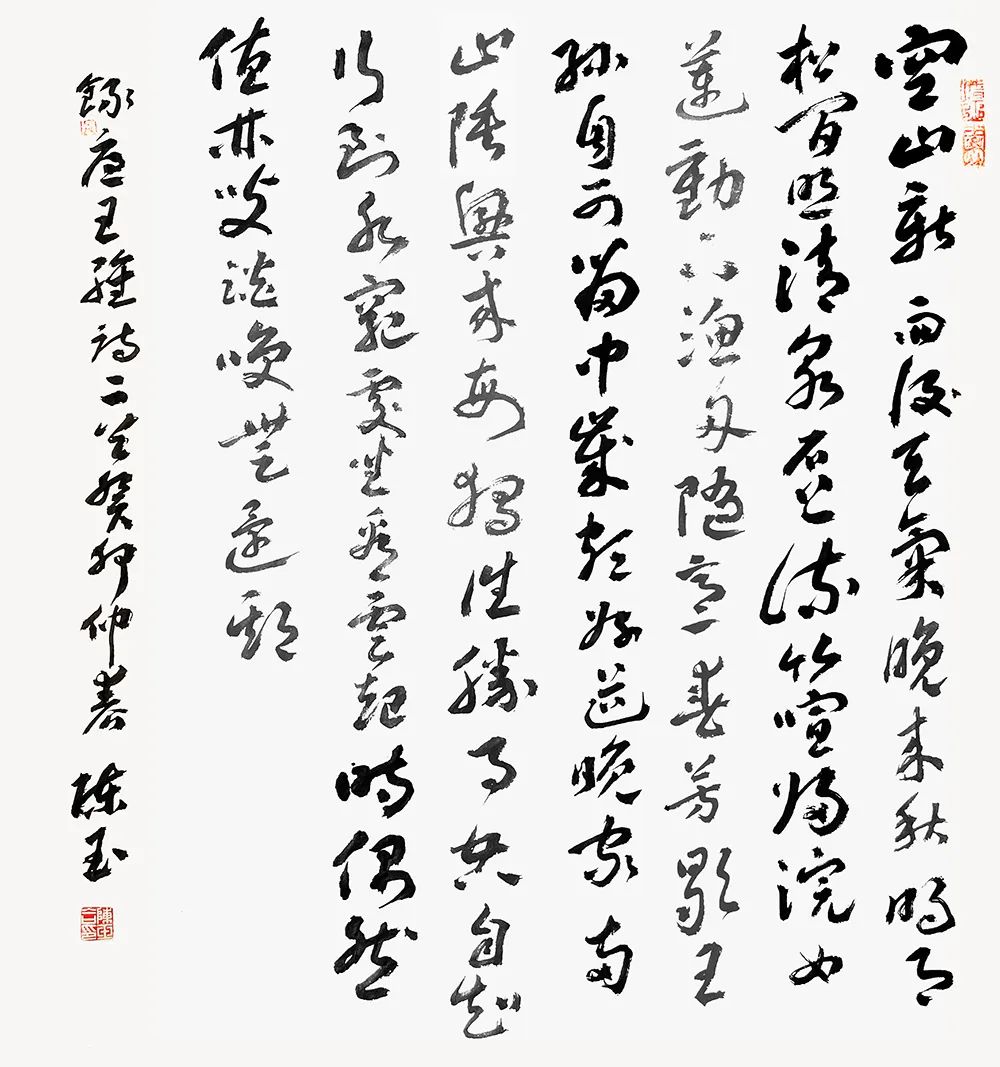 空山新雨後天氣晚來秋明月
松間照清泉石上流竹喧歸浣女
蓮動下漁舟隨意春芳歇王
孫自可留中歲頗好道晚家南
山陲興來每獨往勝事空自知
行到水窮處坐看雲起時偶然
值林叟談咲無還期
錄唐王維詩二首癸卯仲春 陳玉